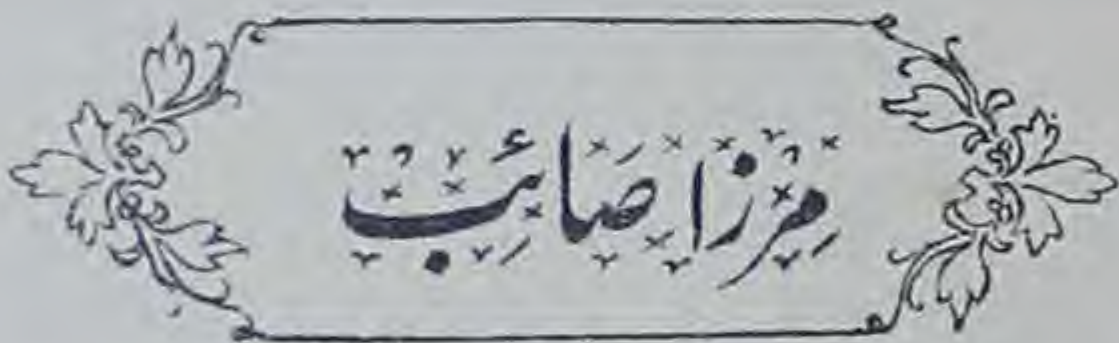 مِرزا صَائِب